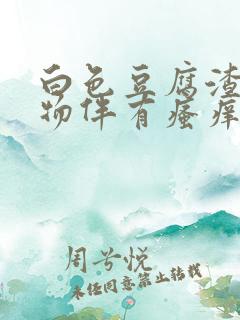 白色豆腐渣
物伴有瘙痒
周兮悦
未经同意禁止转载